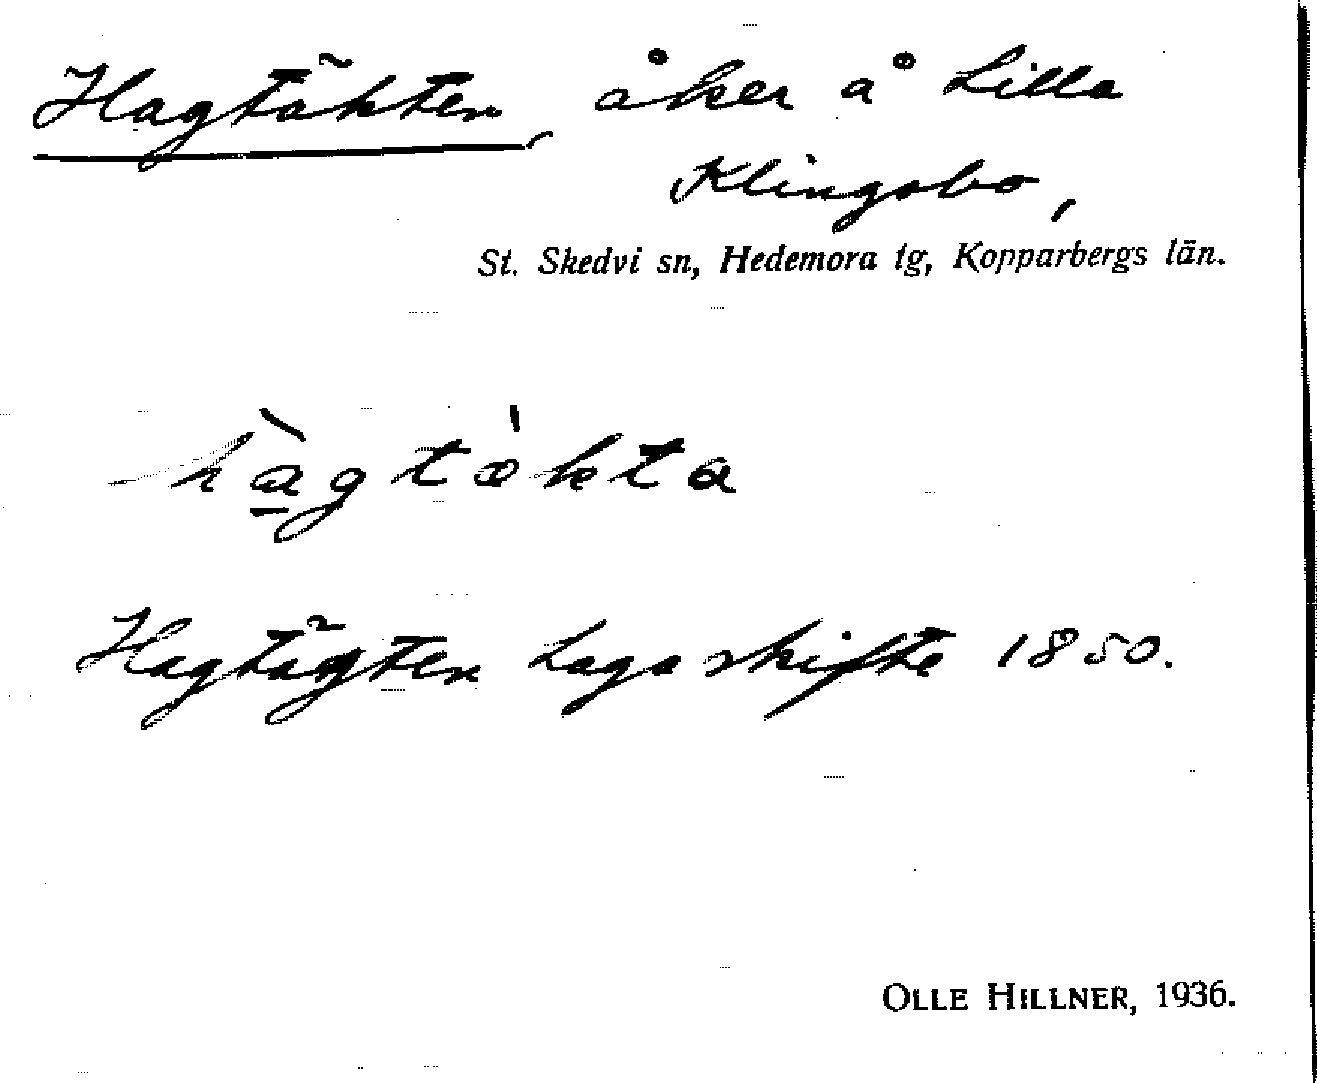 Hagtäkten, åker å Lilla
Klingsbo,
St. Skedvi sn, Hedemora tg, Kopparbergs län.
hàgtæ̀kta
Hagtägten Laga skifte 1850.
OLLE HILLNER, 1936.